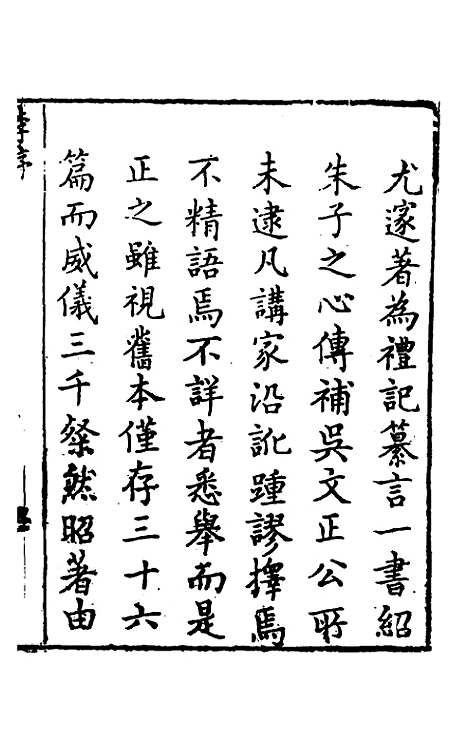 尤邃著為禮記纂言一書紹
朱子之心傳補吳文正公所
未逮凡講家沿訛踵謬擇焉
不精語焉不詳者悉舉而是
正之雖視舊本僅存三十六
篇而威儀三千粲然昭著由
李序